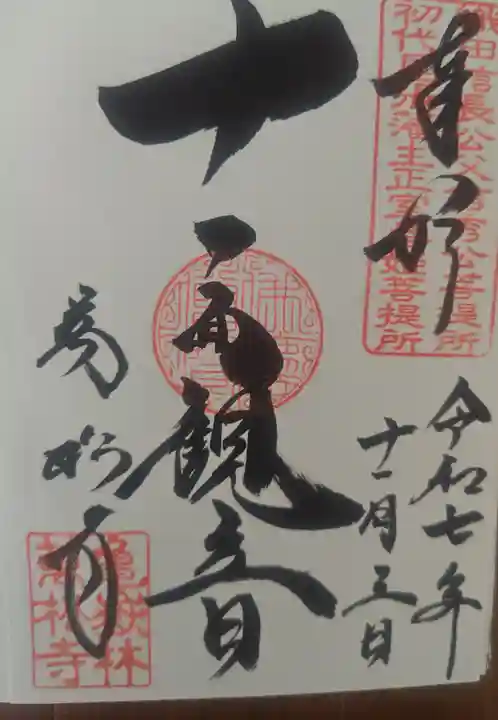 奉拝
織田信長公父信秀公菩提所
初代尾張藩主正室春姫菩提所
令和七年
十一月三日
十一面観音
萬松寺
亀嶽林
萬松寺